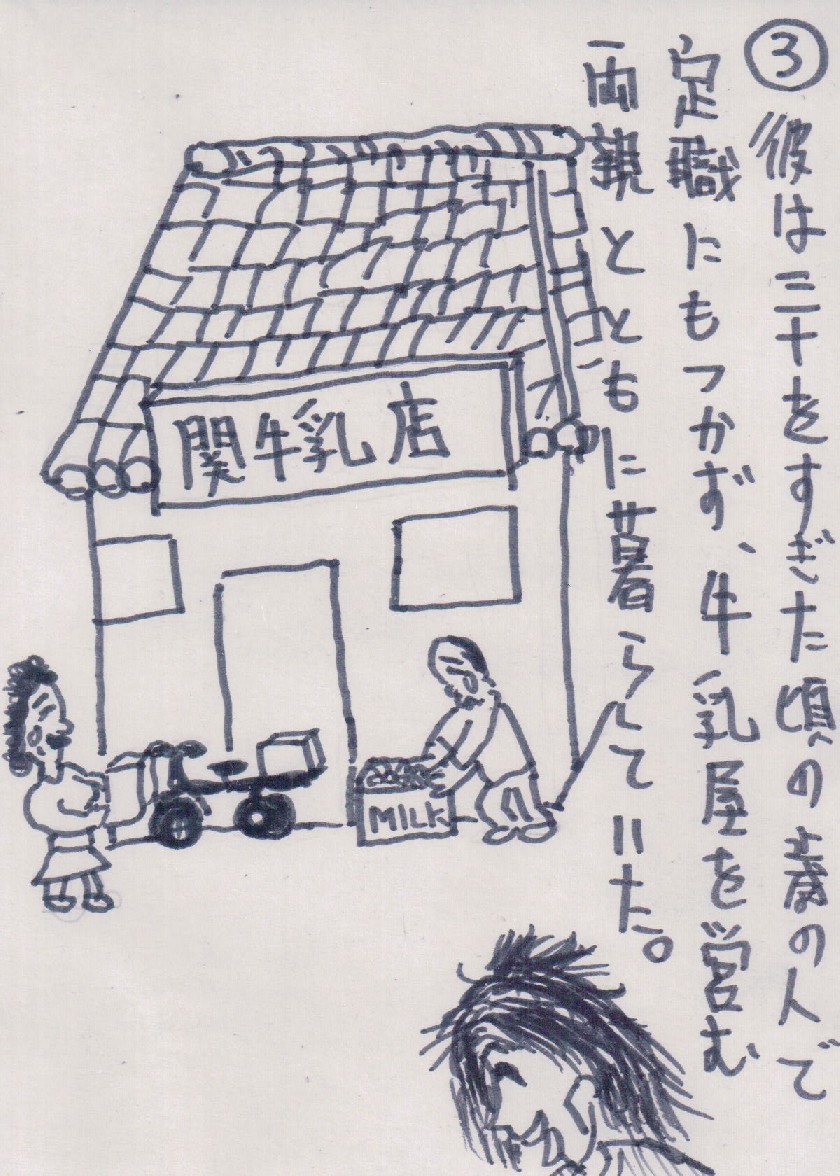 ③彼は三十をすぎた頃の歳の人で
定職にもつかず、牛乳屋を営む
両親とともに暮らしていた。
関牛乳店
MILK